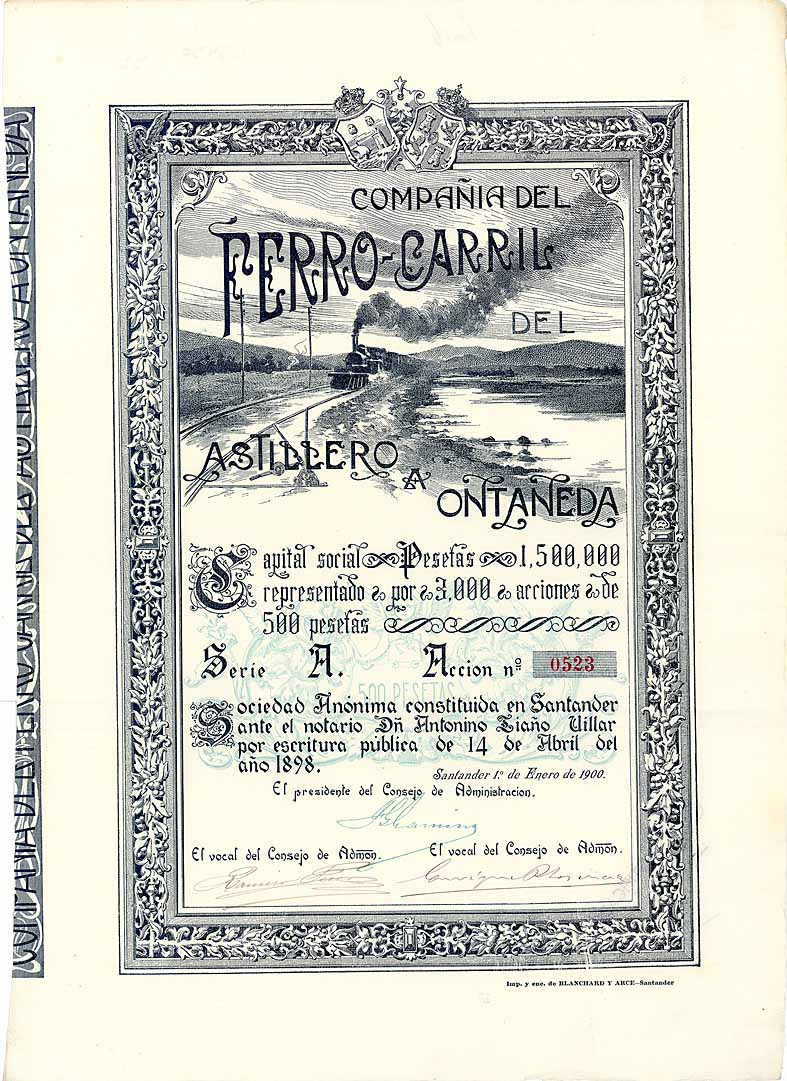 COMPAÑIA DEL
FERRO-CARRIL
DEL
ASTILLERO
A
ONTANEDA
Capital social Pesetas 1,500,000
representado por 3,000 acciones de
500 pesetas
Serie A. Accion nº 0523
500 PESETAS
Sociedad Anónima constituida en Santander
ante el notario Dñ Antonino Tiaño Villar
por escritura pública de 14 de Abril del
año 1898.
Santander 1.º de Enero de 1900.
El presidente del Consejo de Administracion.
El vocal del Consejo de Admon. El vocal del Consejo de Admon.
Imp. y enc. de BLANCHARD Y ARCE-Santander